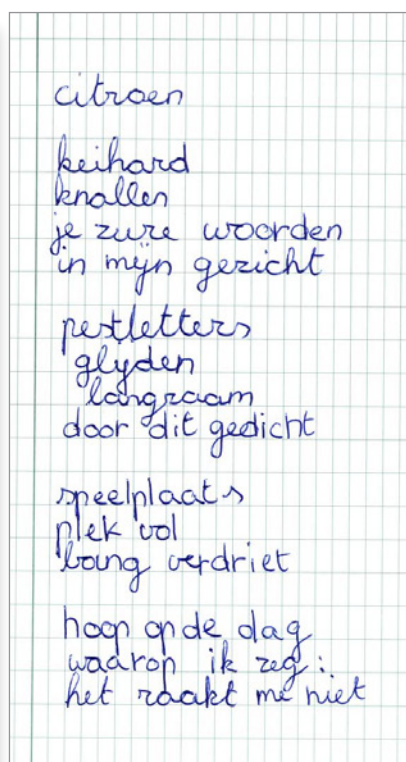 citroen
keihard
knallen
je zure woorden
in mijn gezicht
pestletters
glijden
langzaam
door dit gedicht
speelplaats
plek vol
bang verdriet
hoop op de dag
waarop ik zeg:
het raakt me niet